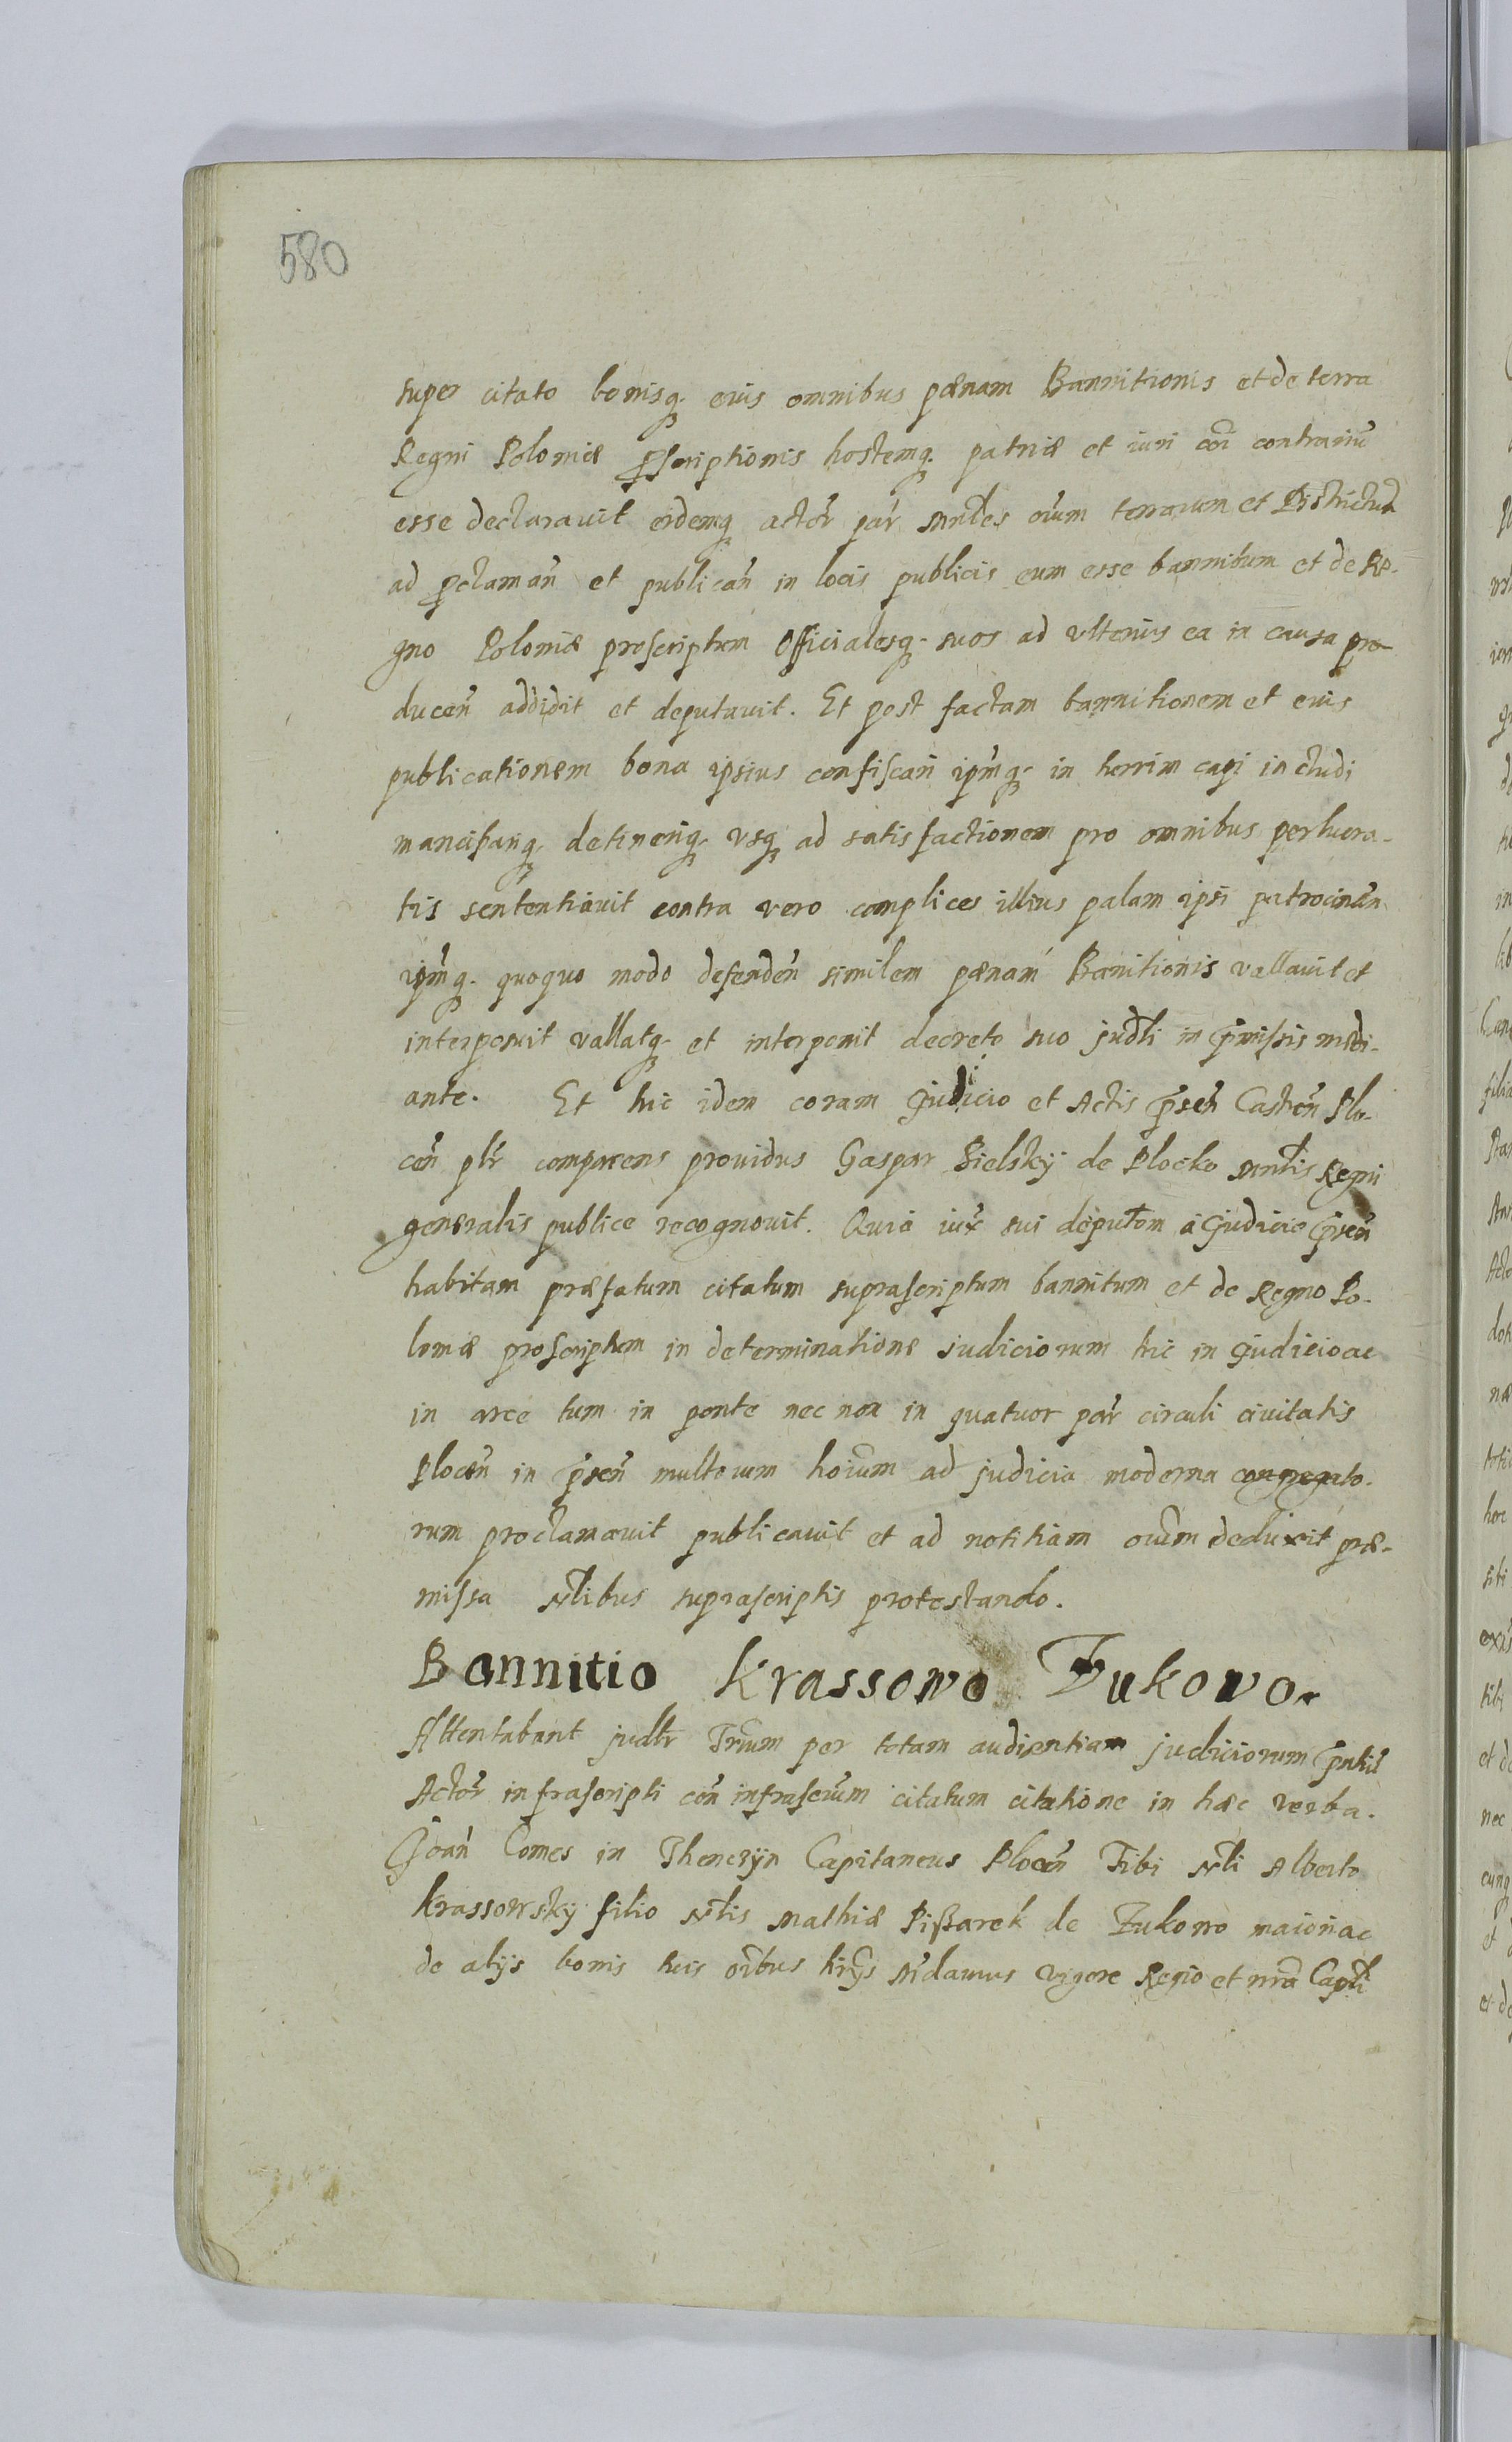 580
super citato bonisq. eius omnibus pœnam Bannitionis et de terra
Regni Poloniæ ꝓscriptionis hostemq. patriæ et iuri cōi contrariū
esse declarauit eidemq actoř pař Mnrles oīum terrarum et Districtuū
ad ꝓclamañ et publicañ in locis publicis eum esse bannitum et de Re-
gno Poloniæ proscriptum Officialesq. suos ad vlterius ea in causa pro
duceñ addidit et deputauit. Et post factam bannitionem et eius
publicationem bona ipsius confiscari ipm̄q. in turrim capi includi
manciparīq. detineriq. vsq ad satisfactionem pro omnibus perlucra-
tis sententiauit contra vero complices illius palam ipsi patrocinañ
ipm̄q. quoquo modo defendeñ similem pœnam Banitionis vallauit et
interposuit vallatq. et interponit decreto suo judłi in p̄missis medi-
ante. Et hic idem coram Judicio et Actis p̄señ Castreñ Plo-
ceñ płr comparens prouidus Gaspar Bielskÿ de Plocko Mnrłis Regni
generalis publice recognouit. Quia iux̄ sui deputōem a Judicio p̄señ
habitam præfatum citatum suprascriptum bannitum et de Regno Po-
loniæ proscriptum in determinatione judiciorum hic in Judicio ac
in arce tum in ponte nec non in quatuor pař circuli ciuitatis
Ploceñ in p̄señ multorum hoīum ad judicia moderna congregato-
rum proclamauit publicauit et ad notitiam oīum deduxit præ-
missa Nłibus suprascriptis protestando.
Bannitio Krassowo Zukowo.
Attentabant judłr Trīum per totam audientiam judiciorum p̄ntiū
Actoř infrascripti coñ infrascrūm citatum citatione in hæc verba.
Joañ Comes in Thenczÿn Capitaneus Ploceñ Tibi Nłi Alberto
Krassowskÿ filio Nłis Mathiæ Pißarek de Zukowo maiori ac
de alÿs bonis tuis oībus hřÿs M̄damus vigore Regio et nr̄a Capłi